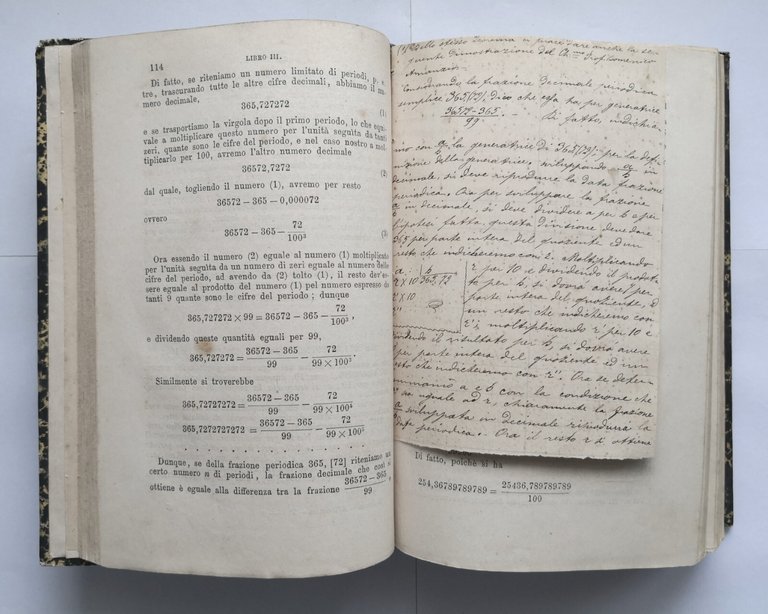 114
LIBRO III.
Di fatto, se riteniamo un numero limitato di periodi, p. e.
tre, trascurando tutte le altre cifre decimali, abbiamo il nu-
mero decimale,
365,727272
(1)
e se trasportiamo la virgola dopo il primo periodo, lo che equi-
vale a moltiplicare questo numero per l'unità seguita da tanti
zeri, quante sono le cifre del periodo, e nel caso nostro a mol-
tiplicarlo per 100, avremo l'altro numero decimale
36572,7272
(2)
dal quale, togliendo il numero (1), avremo per resto
36572 – 365 – 0,000072
ovvero
36572 – 365 – 72/100³
(3)
Ora essendo il numero (2) eguale al numero (1) moltiplicato
per l'unità seguita da un numero di zeri eguale al numero delle
cifre del periodo, ad avendo da (2) tolto (1), il resto dev'es-
sere eguale al prodotto del numero (1) pel numero espresso da
tanti 9 quante sono le cifre del periodo; dunque
365,727272 × 99 = 36572 – 365 – 72/100³,
e dividendo queste quantità eguali per 99,
365,727272 = (36572 – 365)/99 – 72/(99 × 100³).
Similmente si troverebbe
365,72727272 = (36572 – 365)/99 – 72/(99 × 100⁴)
365,7272727272 = (36572 – 365)/99 – 72/(99 × 100⁵)
Dunque, se della frazione periodica 365, [72] riteniamo un
certo numero n di periodi, la frazione decimale che così si
ottiene è eguale alla differenza tra la frazione (36572 – 365)/99,
(1) Dello stesso teorema si può dare anche la se-
guente dimostrazione del Ch.mo Prof. Domenico
Considerando la frazione decimale periodica
semplice 365,(72), dico che essa ha per generatrice
(36572-365)/99. Di fatto, indichia-
mo con a/b la generatrice di 365,(72); per la defi-
nizione della generatrice, sviluppando a/b in
decimale, si deve riprodurre la data frazione
periodica. Ora per sviluppare la frazione
a/b in decimale, si deve dividere a per b e per
l'ipotesi fatta, questa divisione deve dare
365 per parte intera del quoziente ed un
resto che indicheremo con r. Moltiplicando
r per 10 e dividendo il prodotto
per b, si dovrà avere 7 per
parte intera del quoziente, e
un resto che indicheremo con
r'; moltiplicando r' per 10 e
dividendo il risultato per b, si dovrà avere
2 per parte intera del quoziente ed un
resto che indicheremo con r''. Ora se deter-
miniamo a e b con la condizione che
r'' sia uguale ad r, chiaramente la frazione
a/b sviluppata in decimale riprodurrà la
data periodica. Ora il resto r si ottiene
a
b
365,72
r × 10
r' × 10
r''
Di fatto, poichè si ha
254,36789789789 = 25436,789789789/100